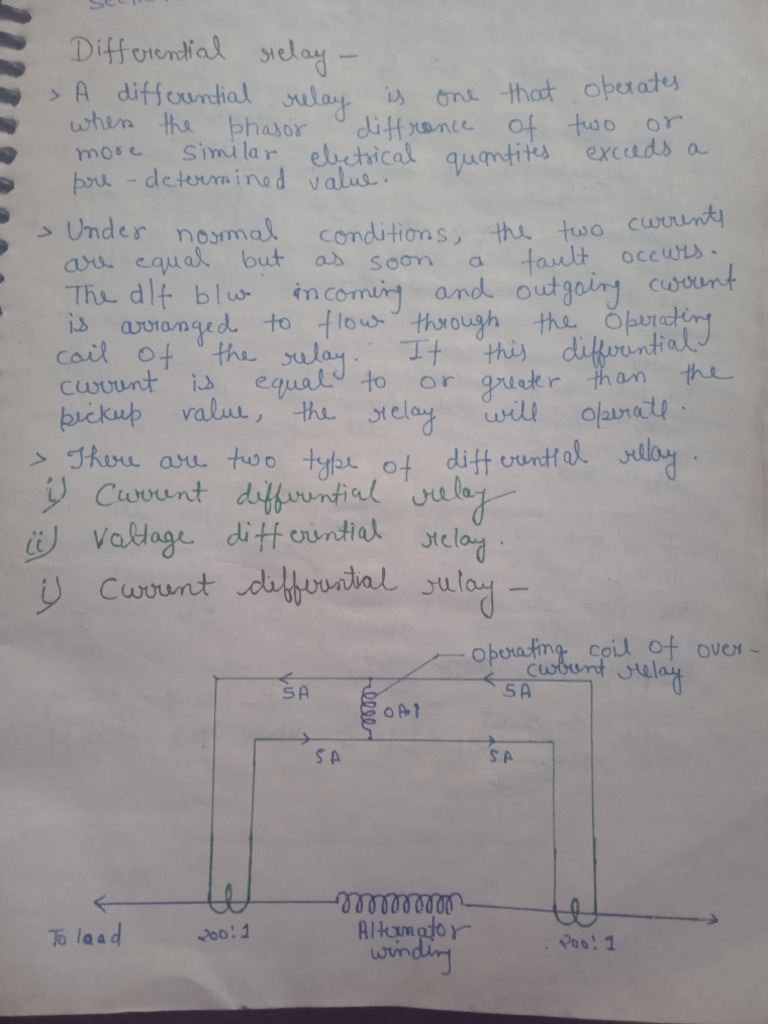 Differential relay –
> A differential relay is one that operates
when the phasor diffrence of two or
more similar electrical quantites exceeds a
pre-determined value.
> Under normal conditions, the two currents
are equal but as soon a fault occurs.
The d/f b/w incoming and outgoing current
is arranged to flow through the operating
coil of the relay. If this differential
current is equal to or greater than the
pickup value, the relay will operate.
> There are two type of differential relay.
i) Current differential relay
ii) Voltage differential relay.
i) Current differential relay –
Operating coil of over-
current relay
5A
5A
0A
5A
5A
To load
200:1
Alternator
winding
200:1